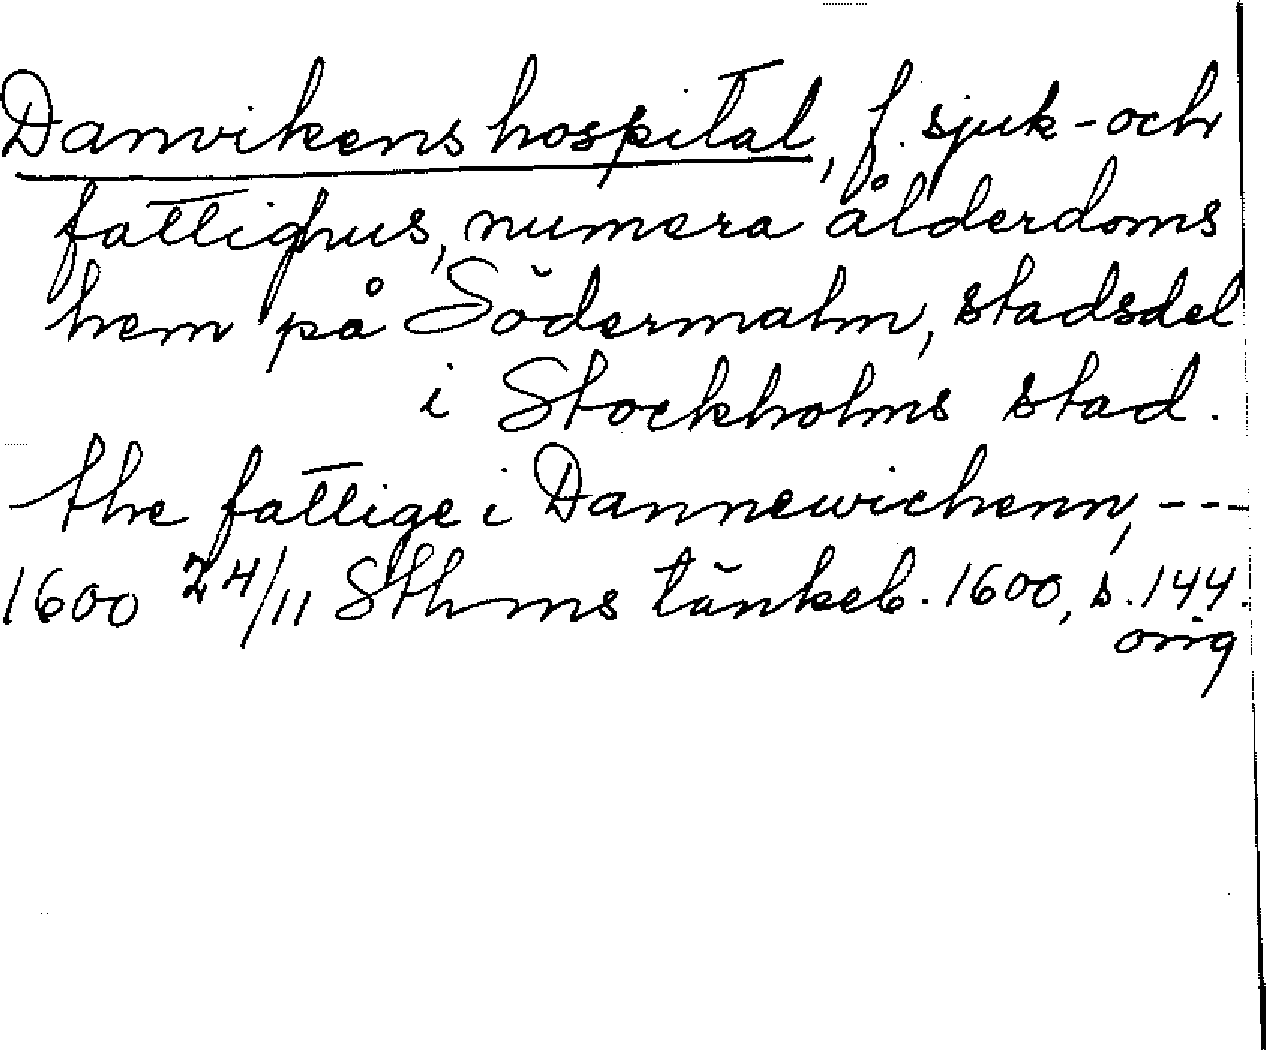 Danvikens hospital, f. sjuk- och
fattighus, numera ålderdoms
hem på Södermalm, stadsdel
i Stockholms stad.
the fattige i Dannewichenn, ---
1600 24/11 Sthms tänkeb. 1600, s. 144.
orig